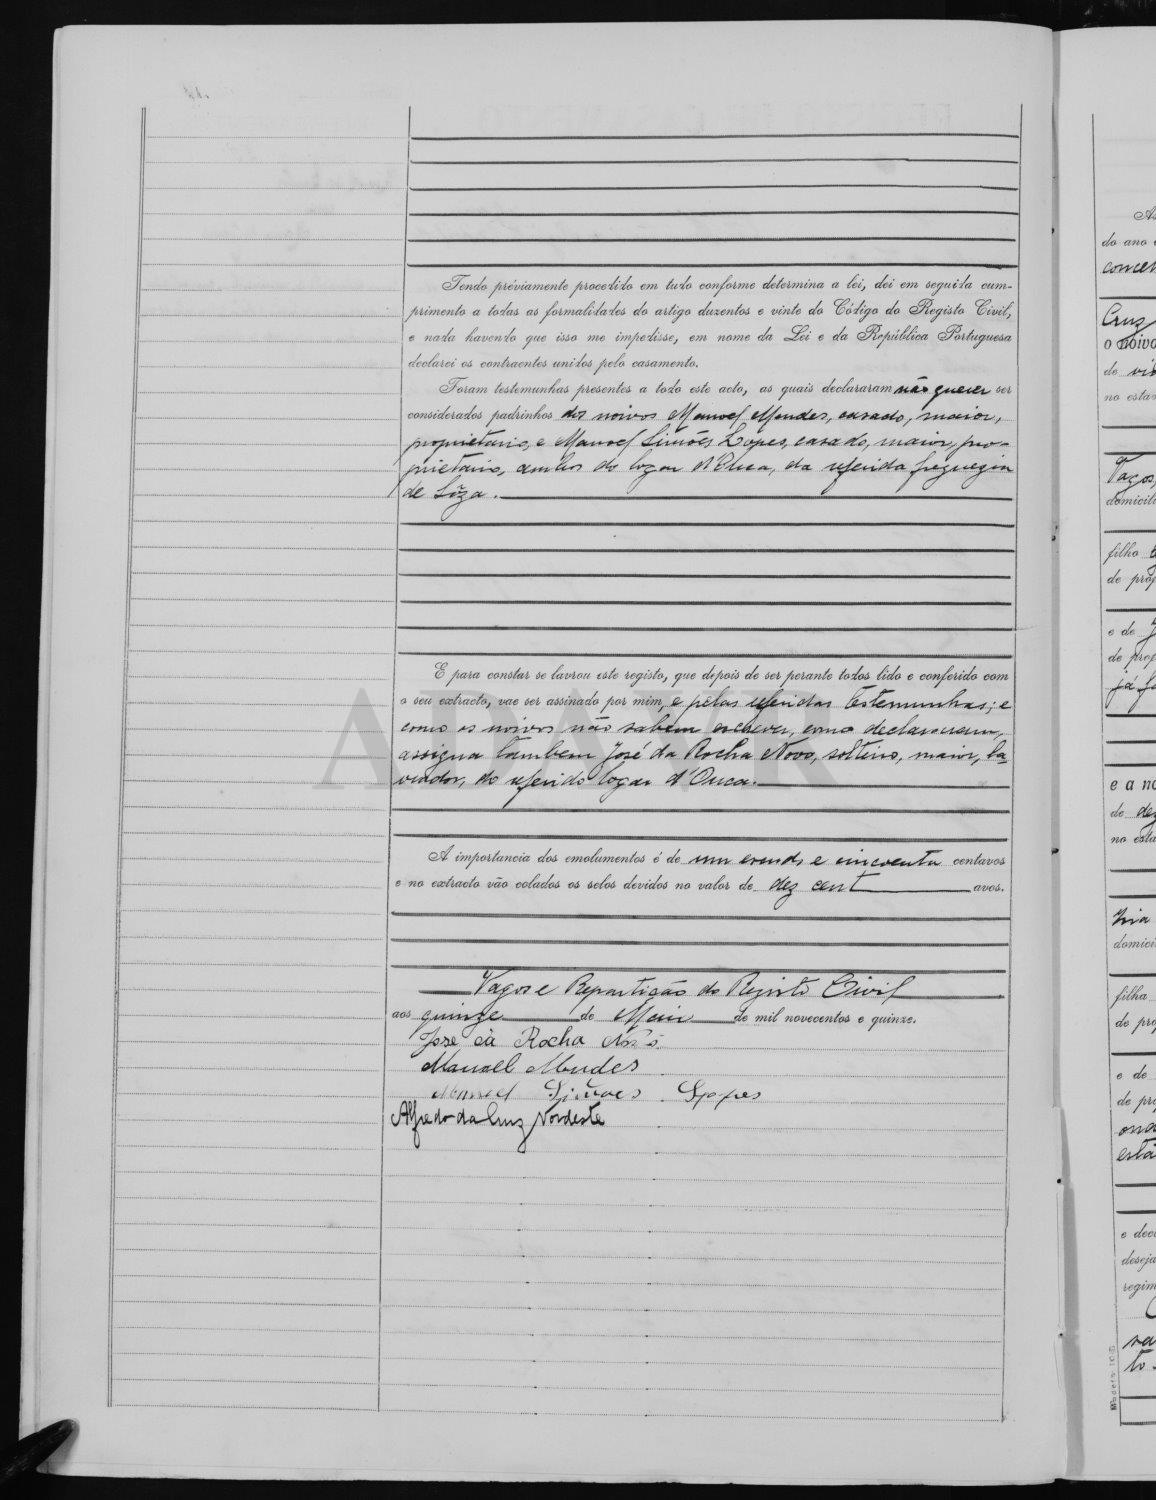 Tendo préviamente procedido em tudo conforme determina a lei, dei em seguida cum-
primento a todas as formalidades do artigo duzentos e vinte do Código do Registo Civil,
e nada havendo que isso me impedisse, em nome da Lei e da República Portuguesa
declarei os contraentes unidos pelo casamento.
Foram testemunhas presentes a todo este acto, as quais declararam não querer ser
considerados padrinhos dos noivos Manoel Mendes, casado, maior,
proprietario, e Manoel Simões Lopes, casado, maior, pro-
prietario, ambos do logar d'Ouca, da referida freguezia
de Sôza.
E para constar se lavrou este registo, que depois de ser perante todos lido e conferido com
o seu extracto, vae ser assinado por mim, e pelas referidas testemunhas; e
como os noivos não sabem escrever, como declararam,
assigna tambem José da Rocha Novo, solteiro, maior, la-
vrador, do referido logar d'Ouca.
A importancia dos emolumentos é de um escudo e cincoenta centavos
e no extracto vão colados os selos devidos no valor de dez cent avos.
Vagos e Repartição do Registo Civil
aos quinze de Maio de mil novecentos e quinze.
José da Rocha Novo
Manoel Mendes
Manoel Simões Lopes
Alfredo da Cruz Nordeste
do ano
Cruz
o noivo
de
no estad
Vagos,
domicili
filho
de prop
e de J
de prop
já fa
e a no
de dez
no esta
domici
filha
de pro
e de
de pro
está
e decl
deseja
regim
to